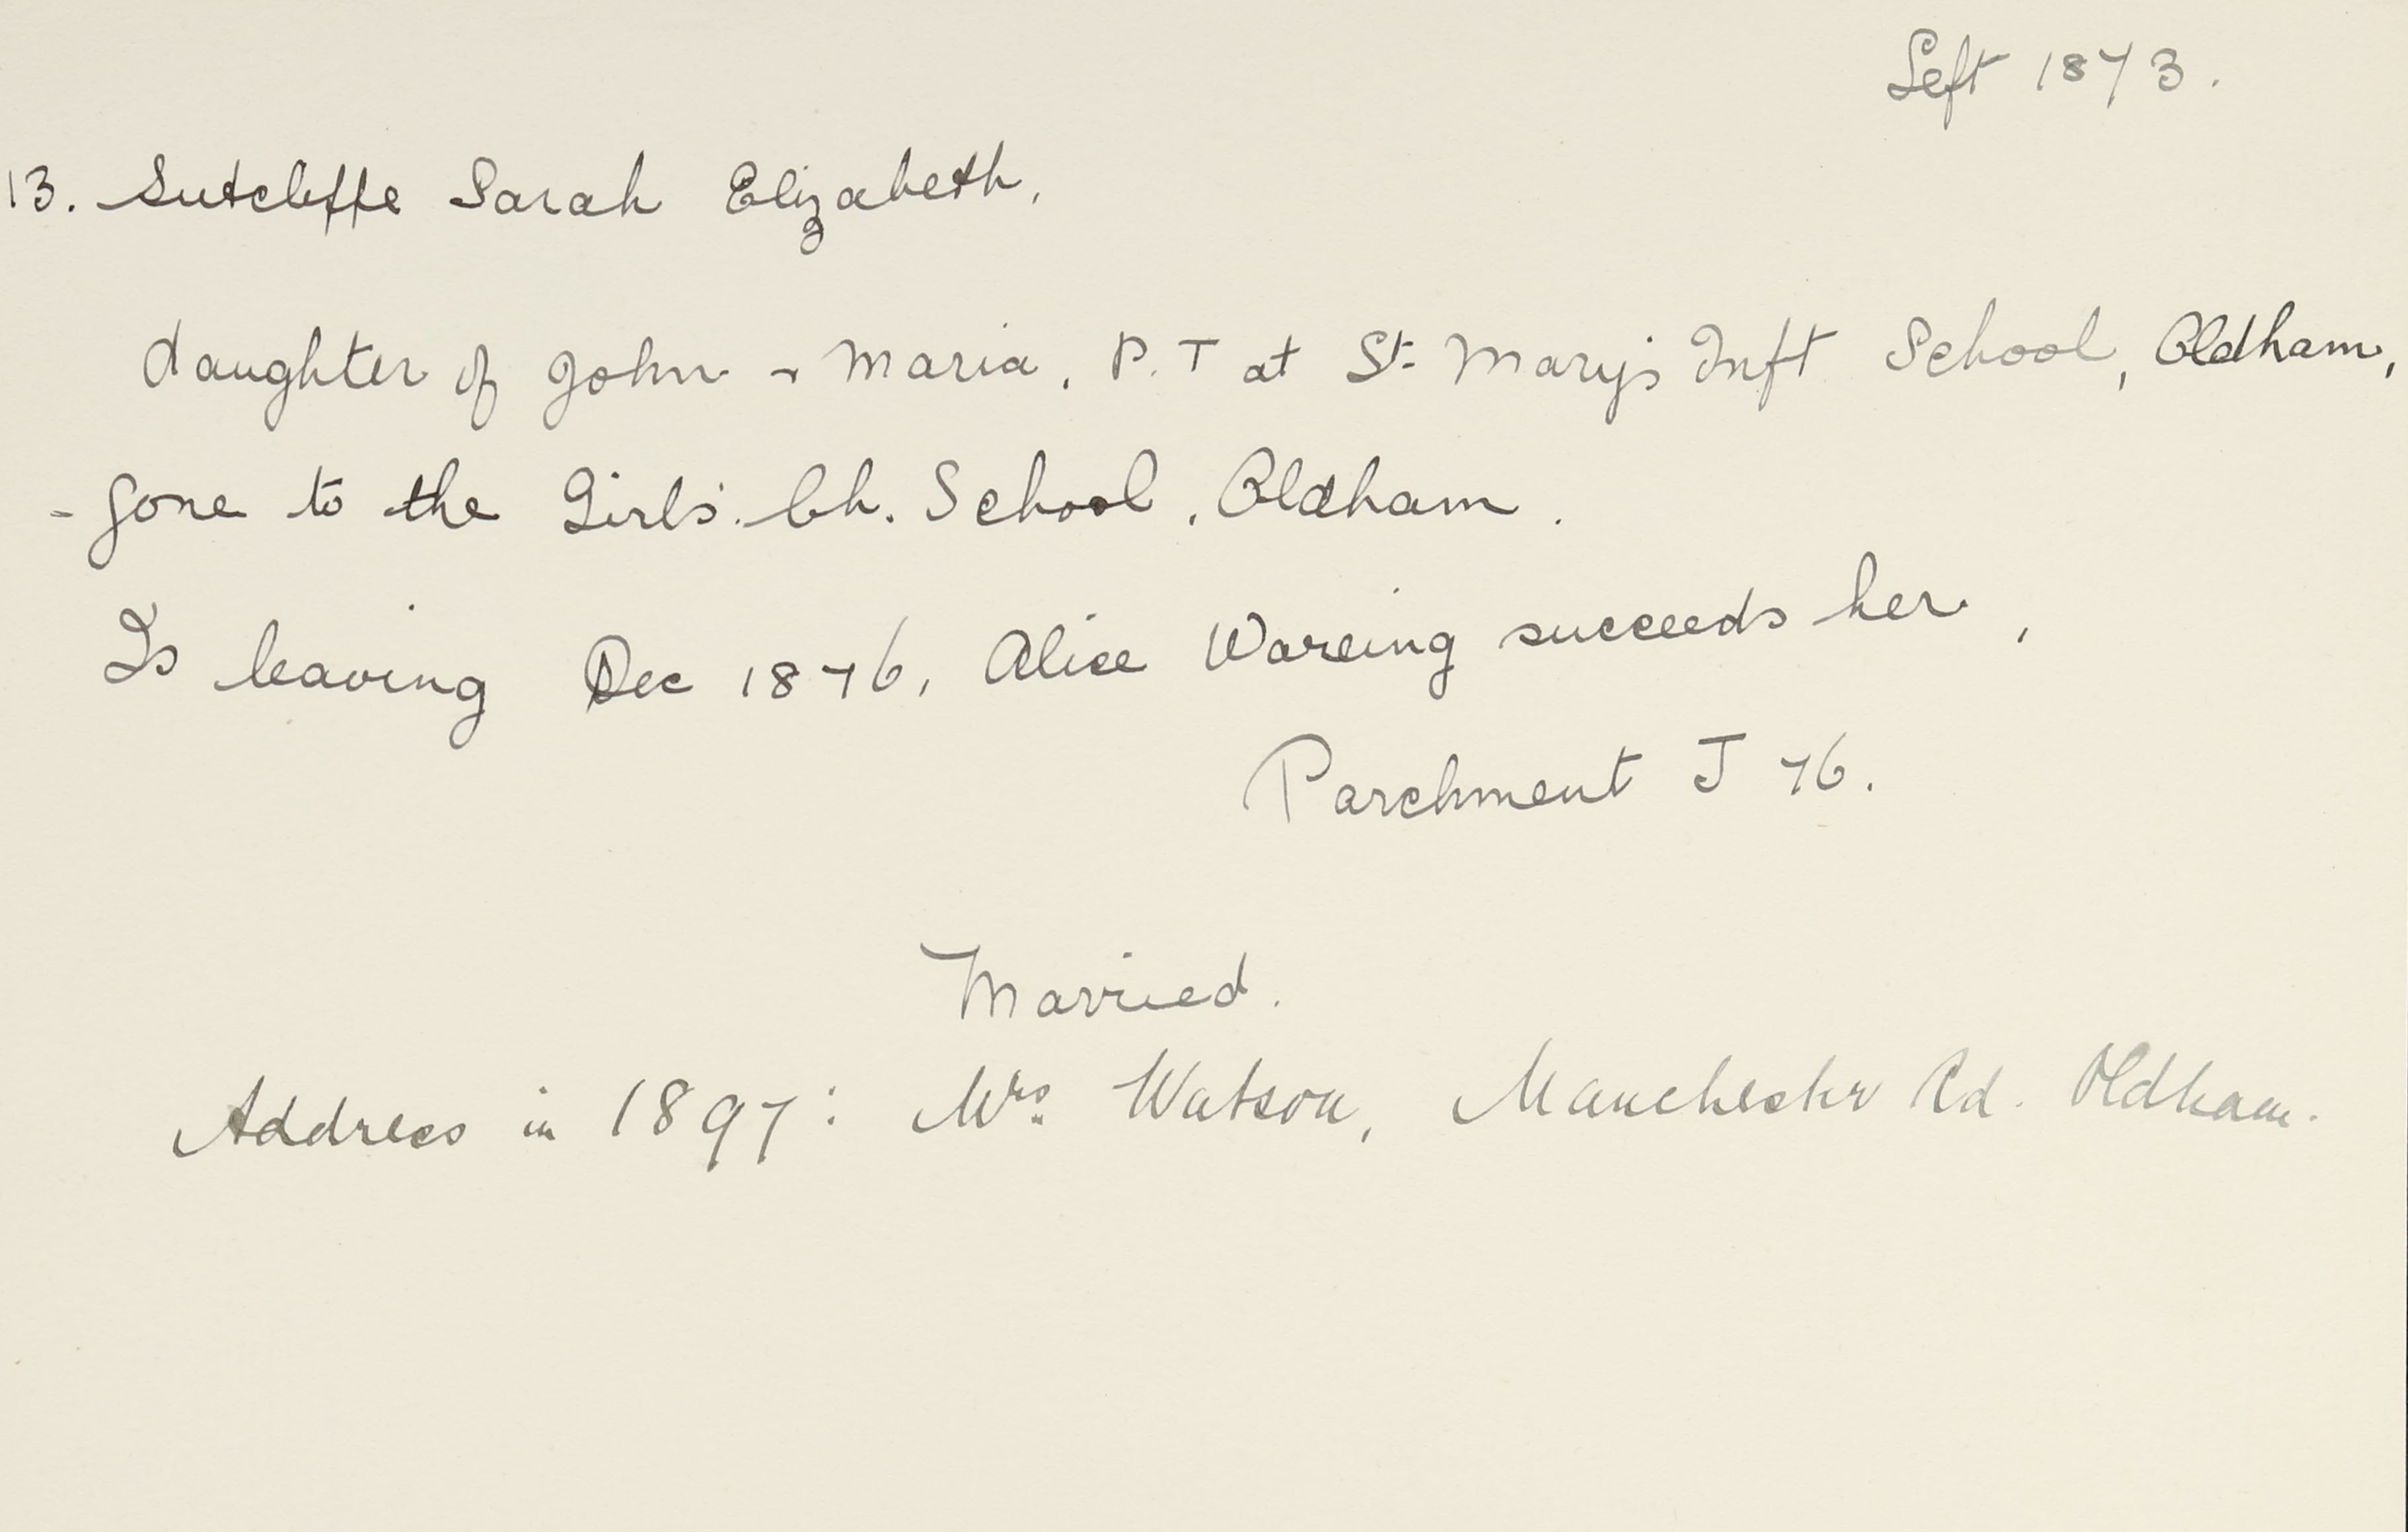 Left 1873.
13. Sutcliffe Sarah Elizabeth,
daughter of John & Maria, P.T at St Mary's Inft School, Oldham,
- gone to the Girls'. Ch. School, Oldham.
Is leaving Dec 1876, Alice Wareing succeeds her,
Parchment J 76.
Married.
Address in 1897: Mrs Watson, Manchester Rd. Oldham.